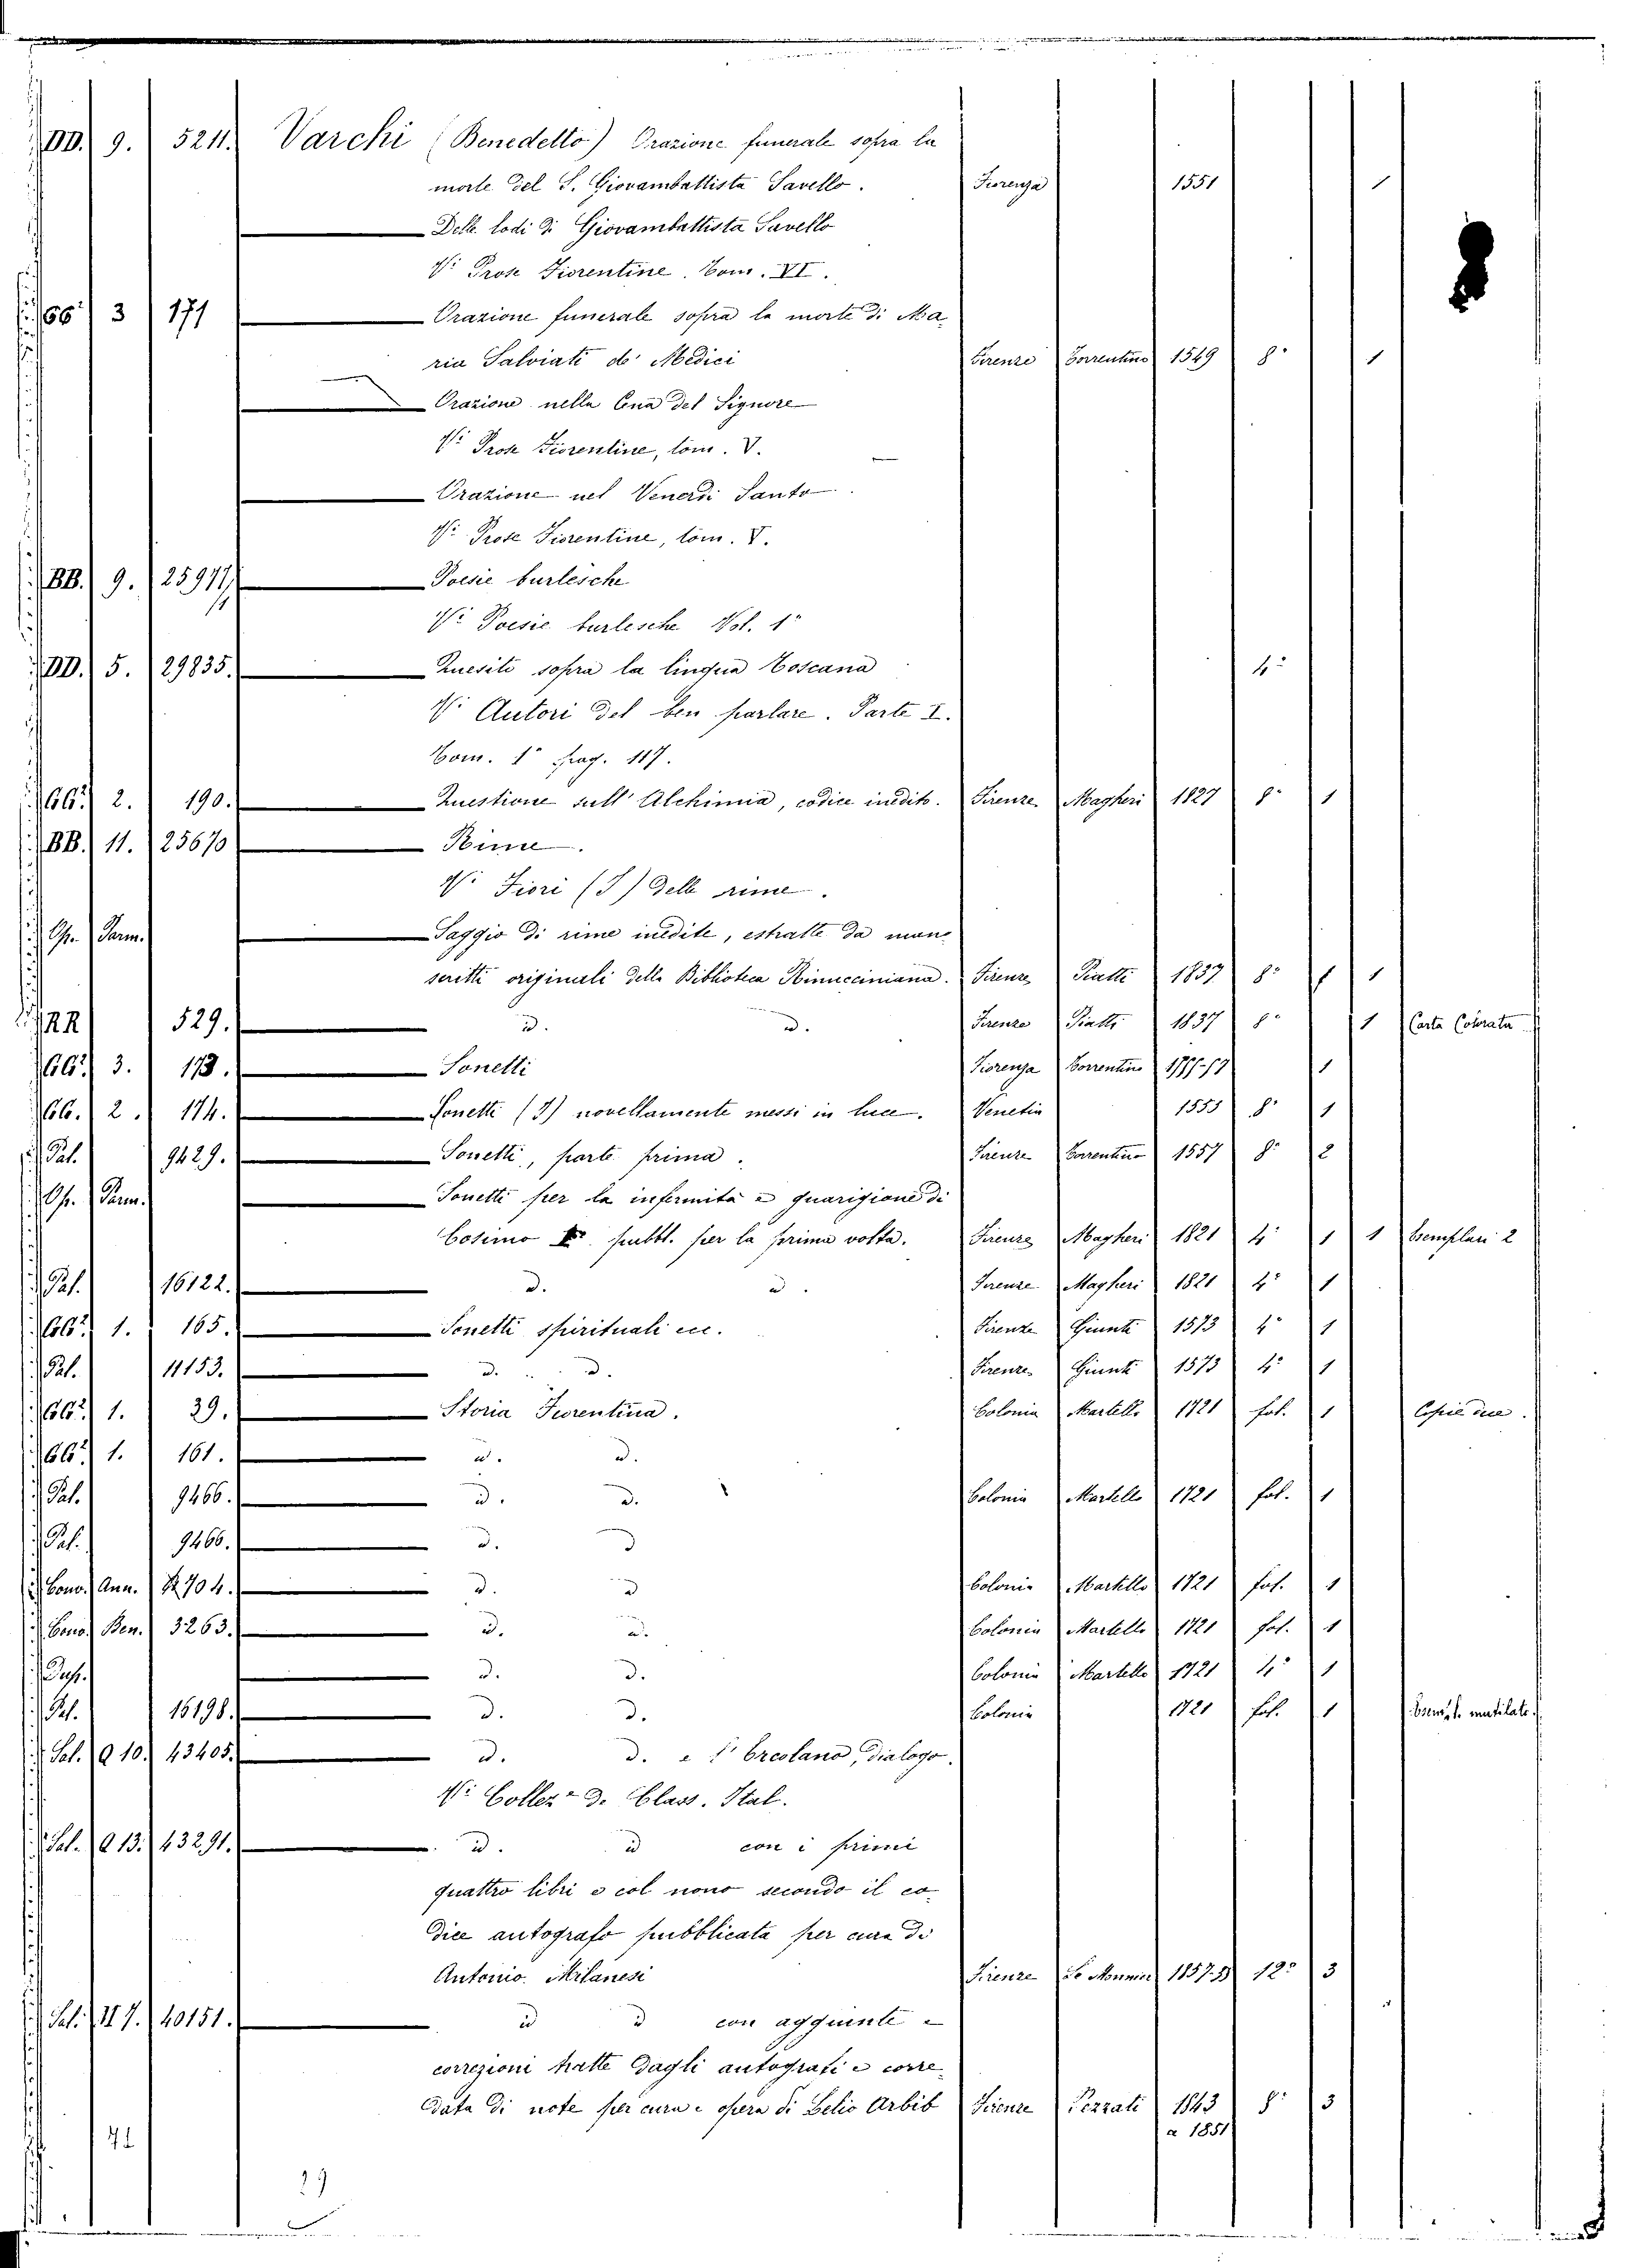 DD. 9. 5211. Varchi (Benedetto) Orazione funerale sopra la
morte del S. Giovambattista Savello. Fiorenza 1551 1
Delle lodi di Giovambattista Savello
V: Prose Fiorentine. Tom. VI.
66² 3 171 Orazione funerale sopra la morte di Ma-
ria Salviati de' Medici Firenze Torrentino 1549 8° 1
Orazione nella Cena del Signore
V: Prose Fiorentine, tom. V.
Orazione nel Venerdì Santo
V: Prose Fiorentine, tom. V.
BB. 9. 25977 Poesie burlesche
V: Poesie burlesche Vol. 1°
DD. 5. 29835. Quesiti sopra la lingua Toscana 4°
V: Autori del ben parlare. Parte I.
Tom. 1° pag. 117.
66² 2. 190. Questione sull' Alchimia, codice inedito. Firenze Magheri 1827 8° 1
BB. 11. 25670 Rime.
V: Fiori (I) delle rime.
Op. Parm. Saggio di rime inedite, estratte da man-
scritti originali della Biblioteca Rinucciniana. Firenze Piatti 1837 8° 1 1
RR 529. id. id. Firenze Piatti 1837 8° 1 Carta Colorata
66² 3. 173. Sonetti Fiorenza Torrentino 1
66. 2. 174. Sonetti (I) novellamente messi in luce. Venetia 1555 8° 1
Pal. 9429. Sonetti, parte prima. Firenze Torrentino 1557 8° 2
Op. Parm. Sonetti per la infermità e guarigione di
Cosimo I° pubbl. per la prima volta. Firenze Magheri 1821 4° 1 1 Esemplari 2
Pal. 16122. id. id. Firenze Magheri 1821 4° 1
66² 1. 165. Sonetti spirituali ecc. Firenze Giunti 1573 4° 1
Pal. 11153. id. id. Firenze Giunti 1573 4° 1
66² 1. 29. Storia Fiorentina. Colonia Martello 1721 fol. 1 Copie due.
66² 1. 161. id. id.
Pal. 9466. id. id. Colonia Martello 1721 fol. 1
Pal. 9466. id. id
Cono. Ann. 2704. id. id Colonia Martello 1721 fol. 1
Cono. Ben. 3263. id. id. Colonia Martello 1721 fol. 1
Dup. id. id. Colonia Martello 1721 4° 1
Pal. 15198. id. id. Colonia 1721 fol. 1 Esempl. mutilato.
Sal. Q 10. 43405. id. id. e l'Ercolano, dialogo.
V: Collezne d. Class. Ital.
Sal. Q 13. 43291. id. id con i primi
quattro libri e col nono secondo il co-
dice autografo pubblicata per cura di
Antonio Milanesi Firenze Le Monnier 1857-58 12° 3
Sal. II 7. 40151. id id con aggiunte e
correzioni tratte dagli autografi e corre-
data di note per cura e opera di Lelio Arbib Firenze Pezzati 1843 8° 3
a 1851
71
29